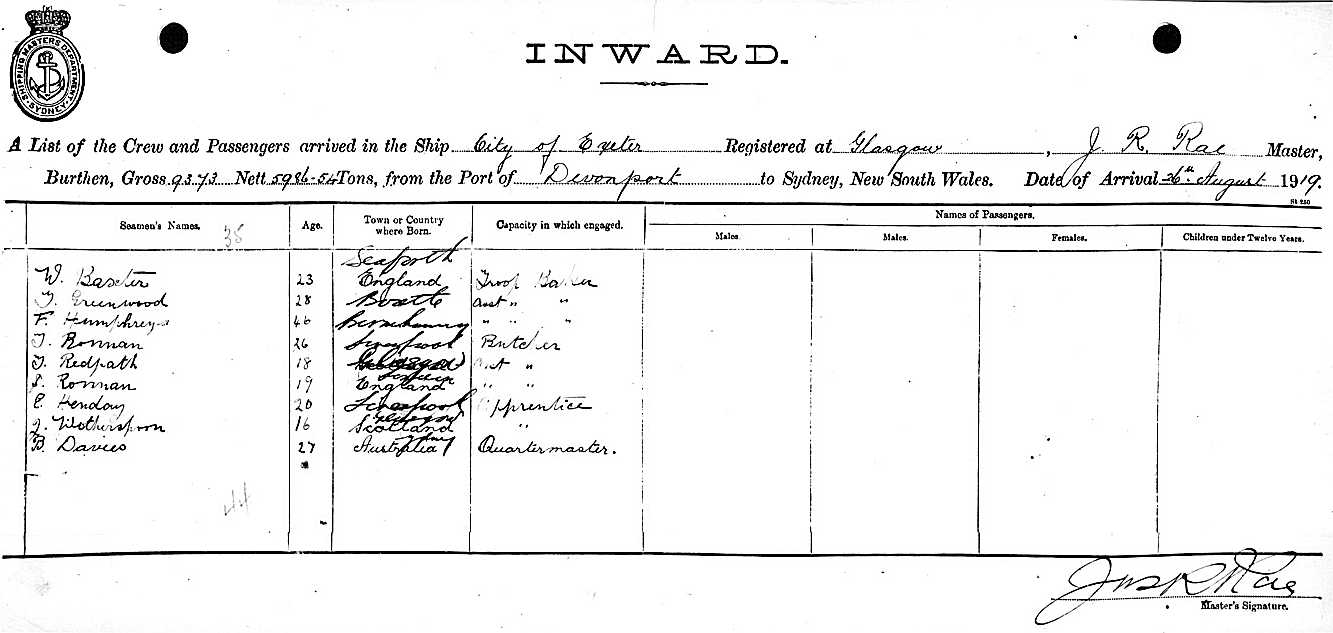 SHIPPING MASTERS DEPARTMENT. SYDNEY
INWARD.
A List of the Crew and Passengers arrived in the Ship City of Exeter Registered at Glasgow, J. R. Rae Master,
Burthen, Gross 9373 Nett 5986-54 Tons, from the Port of Devonport to Sydney, New South Wales. Date of Arrival 26th August 1919.
St 250
Seamen's Names. 38 Age. Town or Country where Born. Capacity in which engaged. Names of Passengers.
Males. Males. Females. Children under Twelve Years.
Seaforth
W. Baxter 23 England Troop Baker
T. Greenwood 28 Bootle Asst " "
F. Humphreys 46 " " "
T. Ronnan 26 Liverpool Butcher
T. Redpath 18 Glasgow Asst "
S. Ronnan 19 England " "
C. Hendoy 20 Liverpool Apprentice
Glasgow
J. Wotherspoon 16 Scotland "
B. Davies 27 Australia Quartermaster.
44
Jas R Rae
Master's Signature.